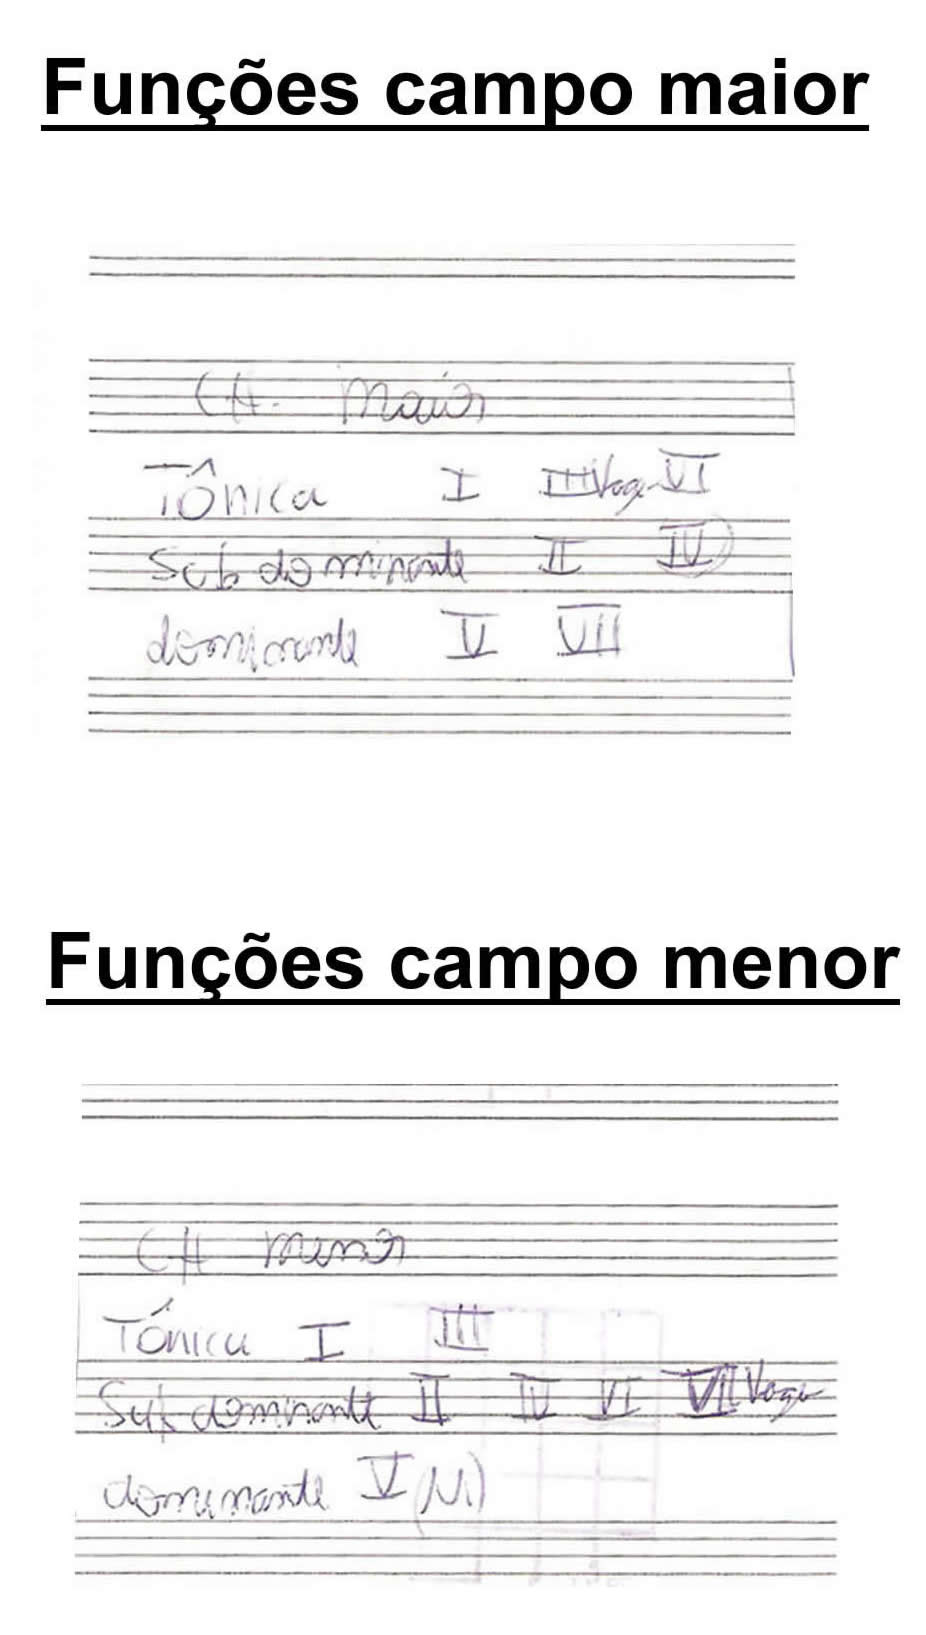 Funções campo maior
CH. Maior
Tônica I III Vago VI
Subdominante II IV
dominante V VII
Funções campo menor
CH menor
Tónica I III
Subdominante II IV VI VII Vago
dominante V